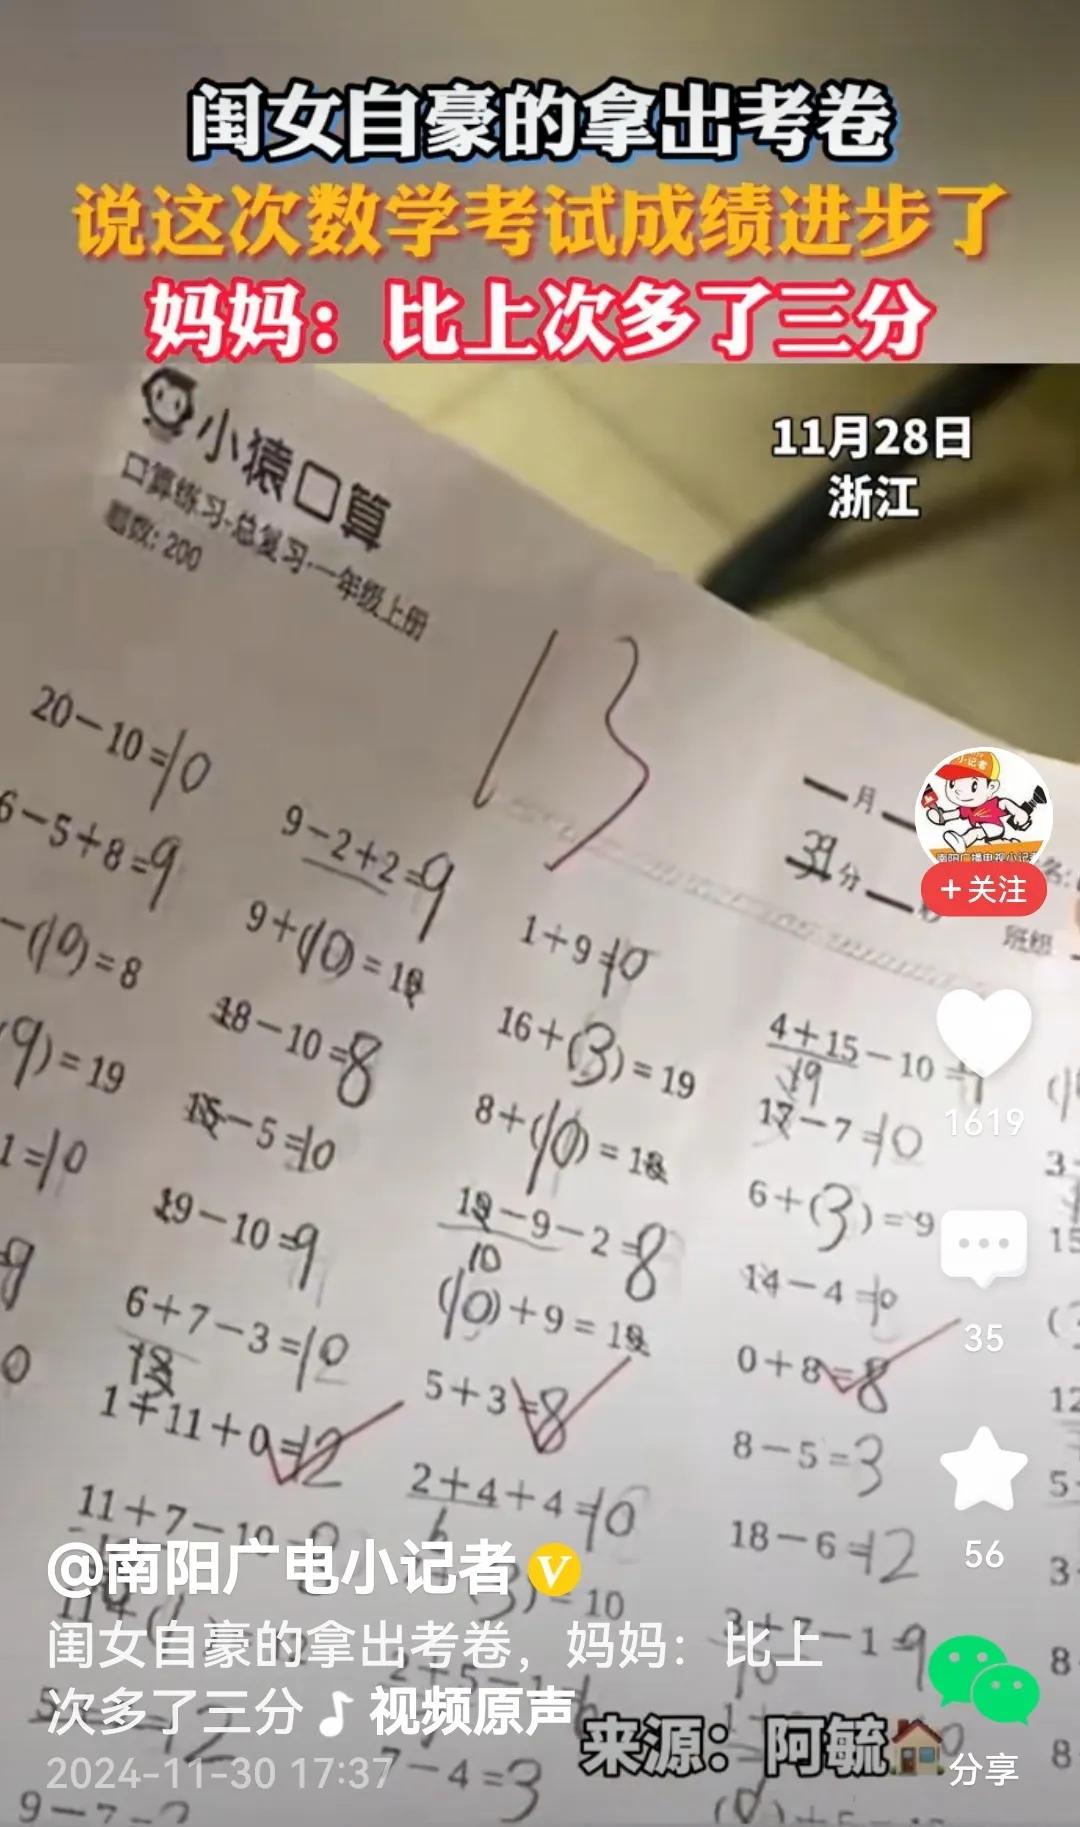 闺女自豪的拿出考卷
说这次数学考试成绩进步了
妈妈：比上次多了三分
11月28日
浙江
小猿口算
口算练习·总复习·一年级上册
题数: 200
13
月
39分
班级
20－10=10
6－5+8=9
9－2+2=9
1+9=10
－(10)=8
9+(10)=19
16+(3)=19
4+15－10=9
19
(9)=19
18－10=8
8+(10)=18
17－7=10
1=10
15－5=10
19－9－2=8
10
6+(3)=9
19－10=9
(10)+9=19
14－4=10
6+7－3=10
13
5+3=8
0+8=8
1+11+0=12
2+4+4=10
6
8－5=3
11+7－10
18－6=12
3)=10
3+7－1=9
10
2+5－1
7－4=3
9－7=2
+关注
1619
35
56
分享
@南阳广电小记者
闺女自豪的拿出考卷，妈妈：比上
次多了三分 视频原声
来源：阿毓
2024-11-30 17:37